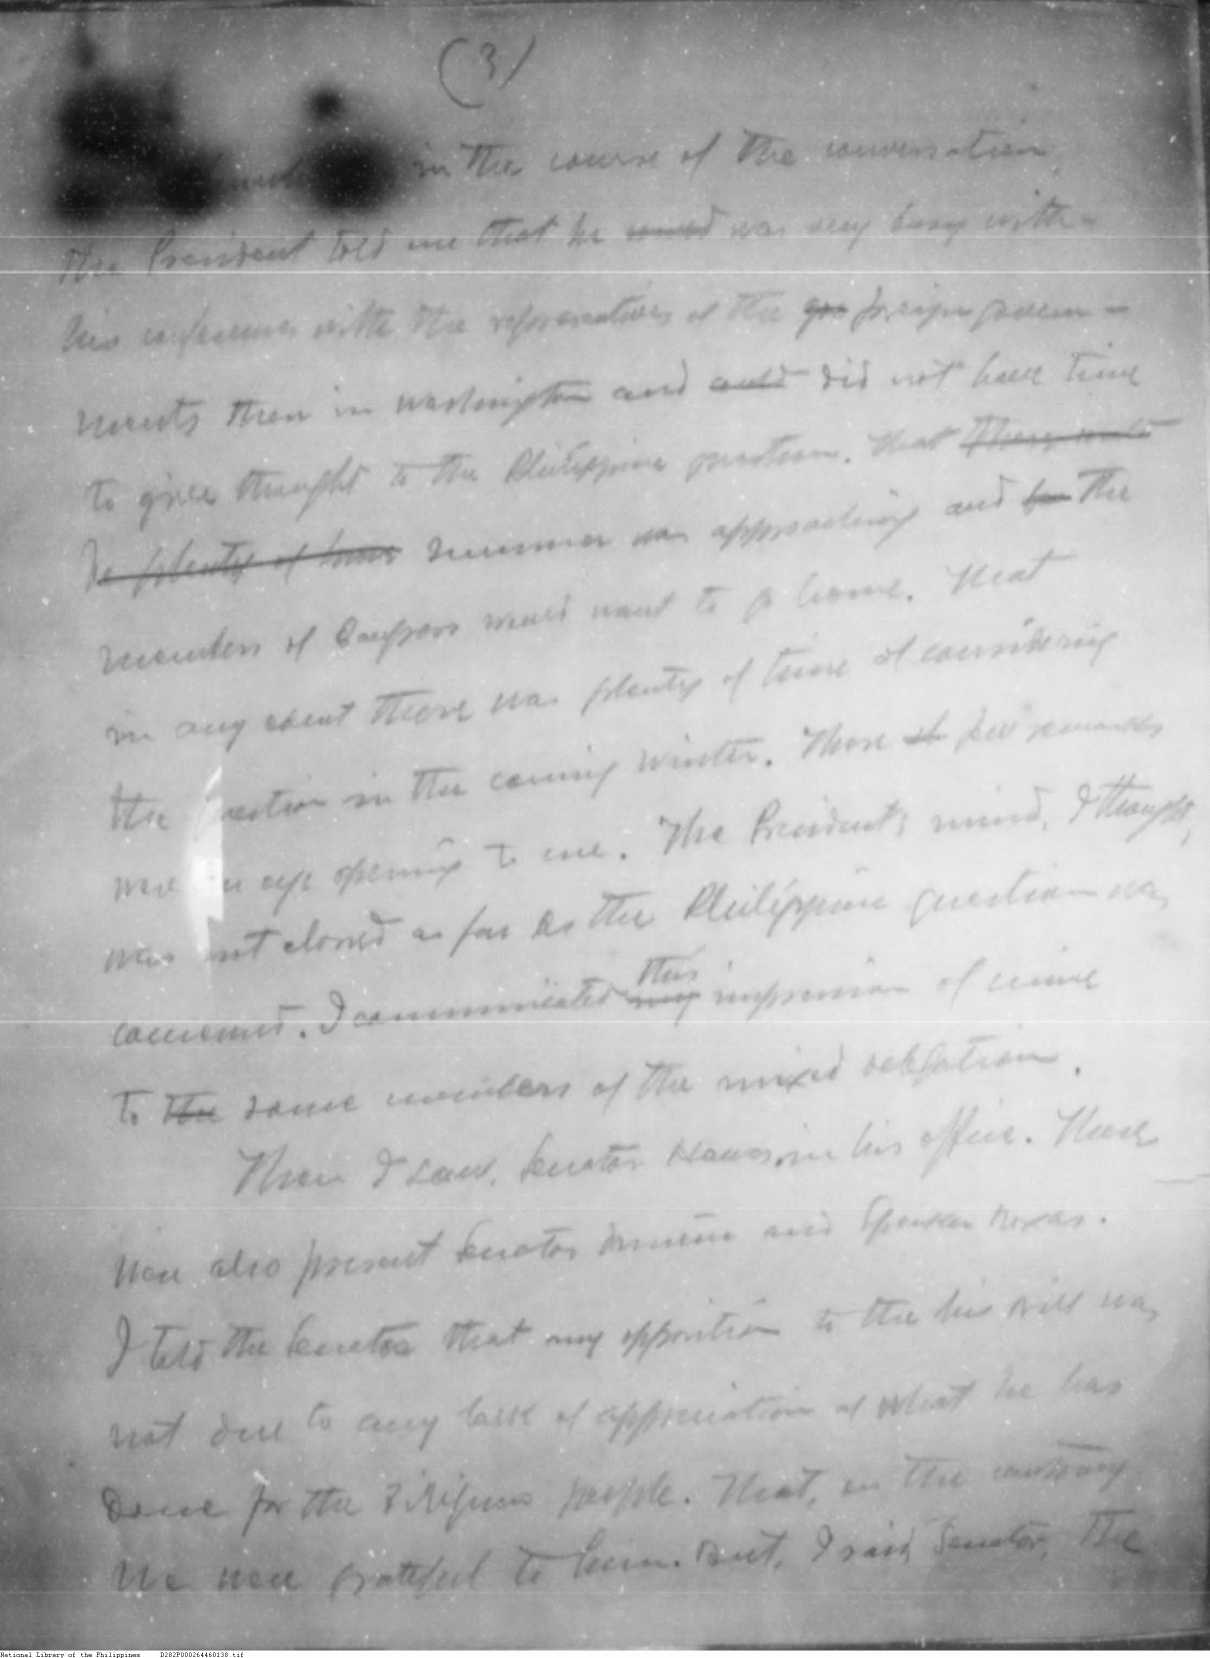 (3)
in the course of the conversation,
the President told me that he would was very busy with
his conferences with the representatives of the gov foreign govern-
ments then in Washington and could did not have time
to give thought to the Philippine question. That there would
be plenty of time summer was approaching and for the
members of Congress would want to go home. That
in any event there was plenty of time of considering
the question in the coming winter. Those few remarks
were an eye opening to me. The President's mind, I thought,
was not closed as far as the Philippine question was
concerned. I communicated my this impression of mine
to the some members of the mixed delegation.
Then I saw, Senator Hawes, in his office. There
were also present Senator Osmeña and Speaker Roxas.
I told the Senator that my opposition to the his bill was
not due to any lack of appreciation of what he has
done for the Filipino people. That, on the contrary
we were grateful to him. But, I said, Senator, the
National Library of the Philippines D282P000264460138.tif